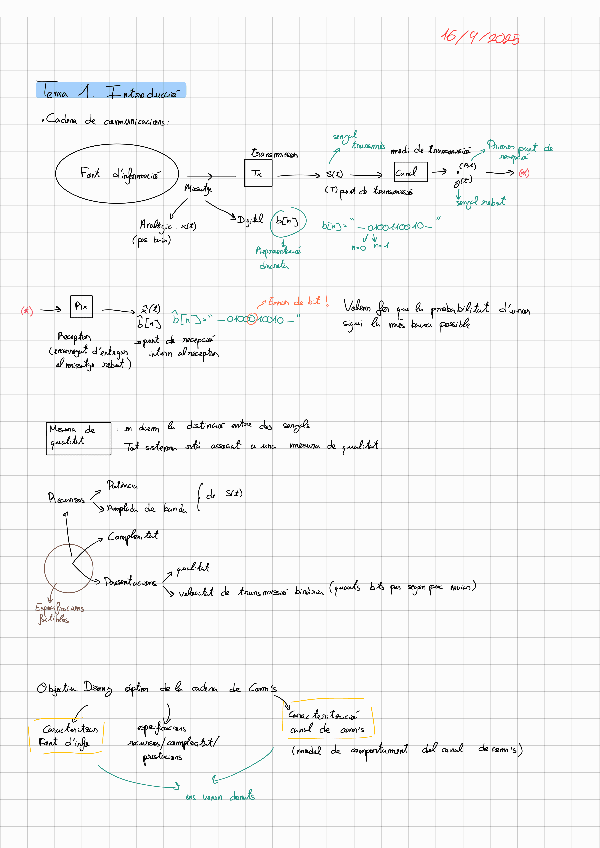 16/9/2025
Tema 1. Introducció
• Cadena de comunicacions:
senyal
transmès
transmissor
medi de transmissió
Primer punt de
recepció
Font d'informació
Missatge
Tx
s(t)
(T) punt de transmissió
Canal
(R)
y(t)
(*)
senyal rebut
Analògic x(t)
Digital
b[n]
b[n]= " -0100110010- "
n=0 n=1
Representació
discreta
(*)
Rx
x̂(t)
b̂[n]
b̂[n]= " -0100010010- "
Error de bit!
Volem fer que la probabilitat d'error
sigui la més baixa possible
Receptor
(encarregat d'entregar
el missatge rebut)
punt de recepció
intern al receptor
Mesura de
qualitat
: en diem la distància entre dos senyals
Tot sistema està associat a una mesura de qualitat
Recursos
Potència
Amplada de banda
de s(t)
Complexitat
Prestacions
qualitat
velocitat de transmissió binària (quants bits per segon puc enviar)
Especificacions
factibles
Objectiu Disseny òptim de la cadena de Com's
Caracteritzar
Font d'info
especificacions
recursos/complexitat/
prestacions
Caracterització
canal de com's
(model de comportament del canal de com's)
ens venen donats